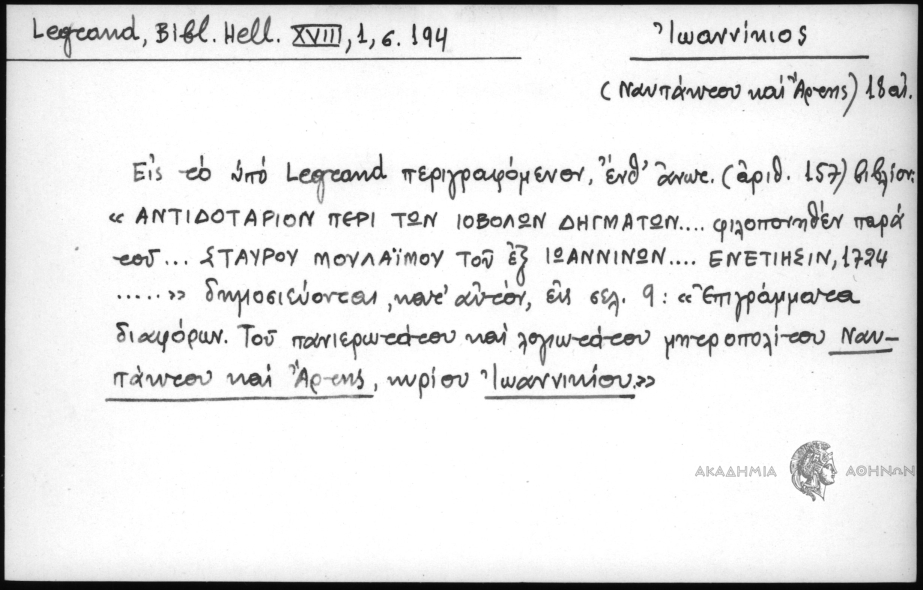 Legrand, Bibl. Hell. XVIII, 1, σ. 194
Ἰωαννίκιος
(Ναυπάκτου καὶ Ἄρτης) 18 αἰ.
Εἰς τὸ ὑπό Legrand περιγραφόμενον, ἔνθ' ἄνωτ. (ἀριθ. 157) βιβλίον:
« ΑΝΤΙΔΟΤΑΡΙΟΝ ΠΕΡΙ ΤΩΝ ΙΟΒΟΛΩΝ ΔΗΓΜΑΤΩΝ.... φιλοπονηθὲν παρὰ
τοῦ... ΣΤΑΥΡΟΥ ΜΟΥΛΑΪΜΟΥ Τοῦ ἐξ ΙΩΑΝΝΙΝΩΝ.... ΕΝΕΤΙΗΣΙΝ, 1724
.....» δημοσιεύονται, κατ' αὐτόν, εἰς σελ. 9: «Ἐπιγράμματα
διαφόρων. Τοῦ πανιερωτάτου καὶ λογιωτάτου μητροπολίτου Ναυ-
πάκτου καὶ Ἄρτης, κυρίου Ἰωαννικίου.»
ΑΚΑΔΗΜΙΑ ΑΘΗΝΩΝ